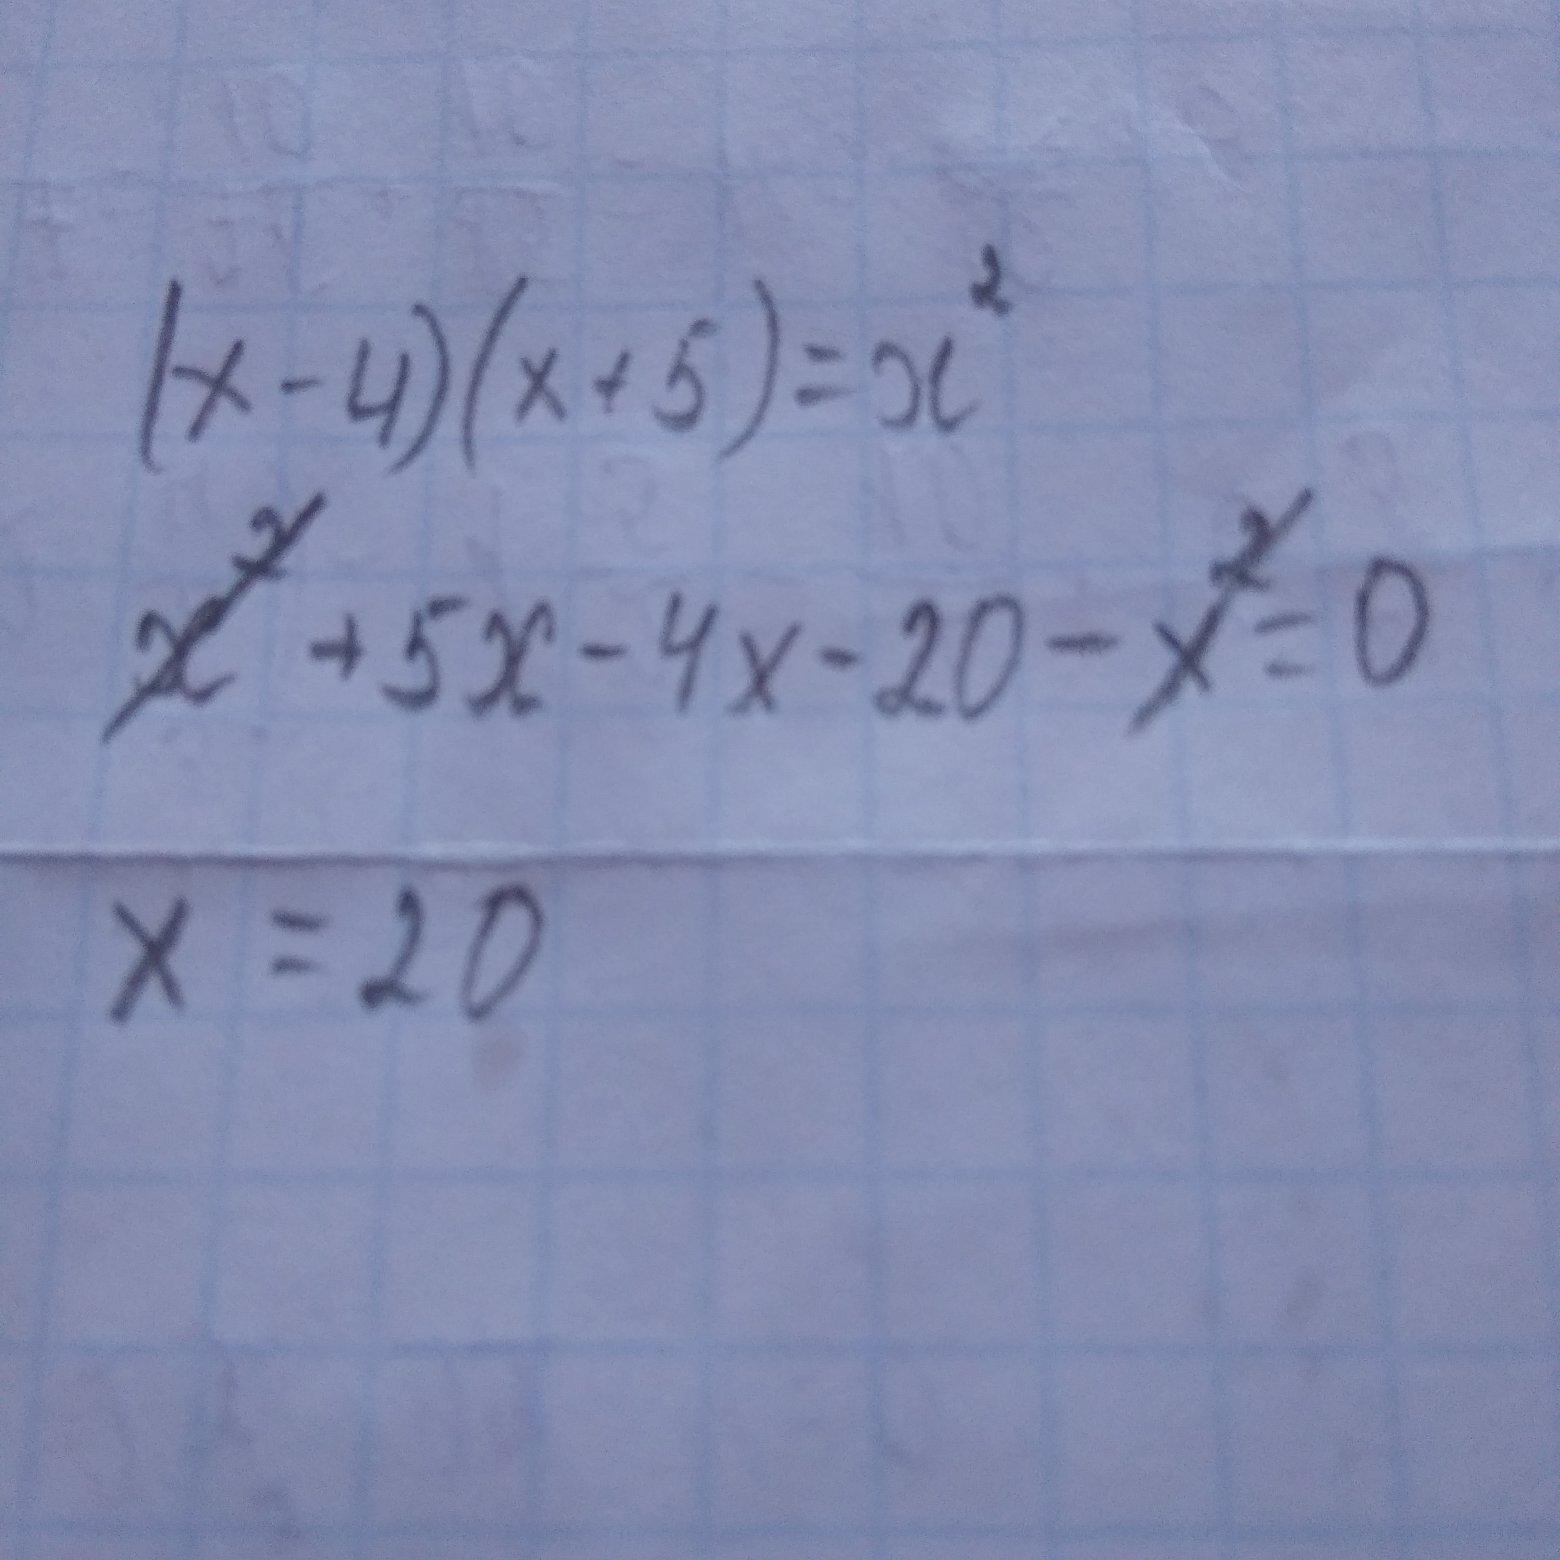 (x-4)(x+5)=x²
x²+5x-4x-20-x²=0
x=20